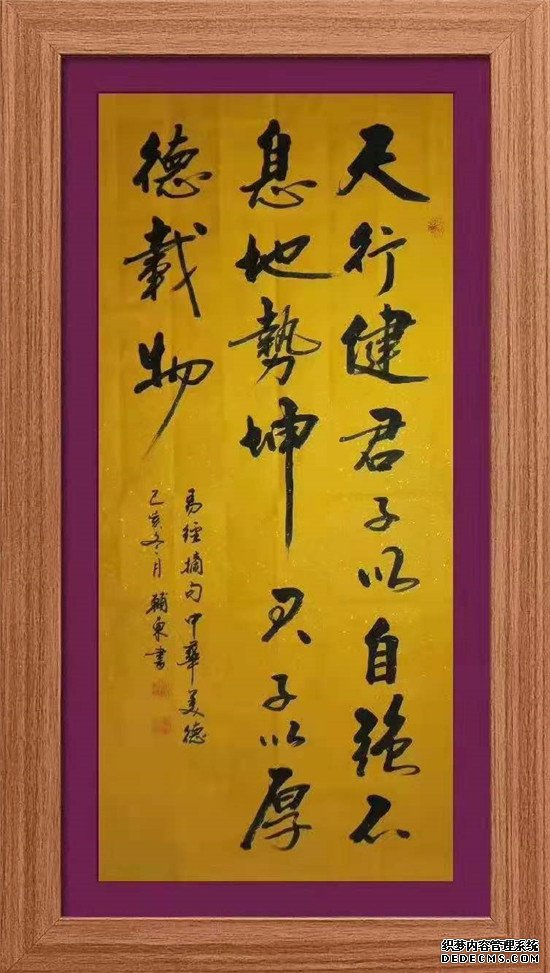 天行健君子以自強不
息地勢坤君子以厚
德載物
易經摘句中華美德
己亥冬月輔東書
织梦内容管理系统
DEDECMS.COM